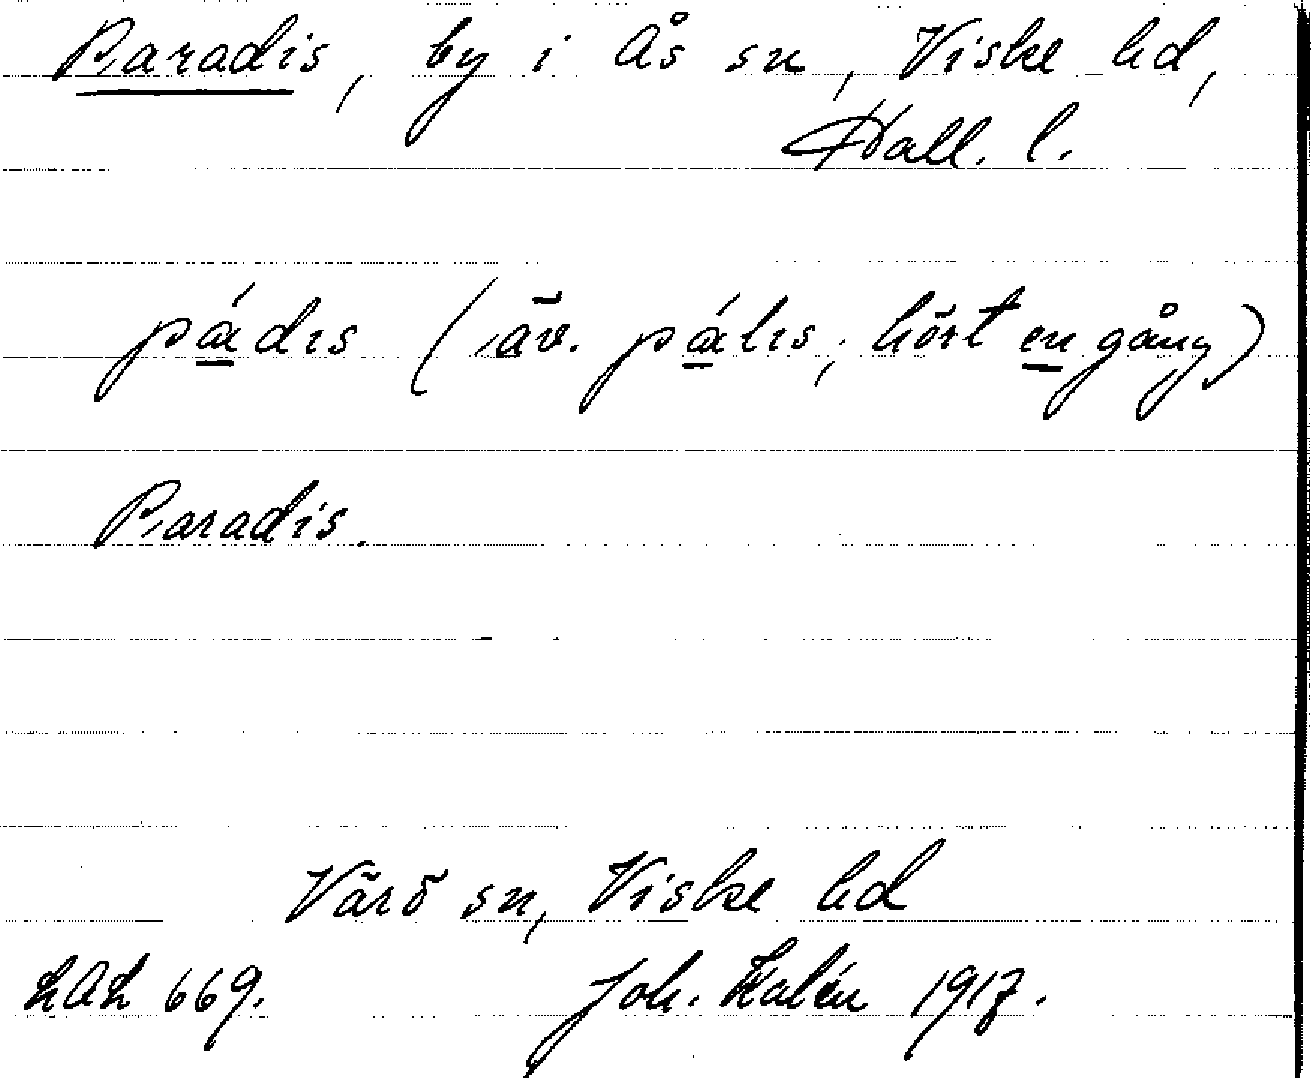 Paradis, by i Ås sn, Viske hd,
Hall. l.
pádıs (äv. pálıs, hört en gång)
Paradis.
Värö sn, Viske hd
LAL 669. Joh. Kalén 1917.